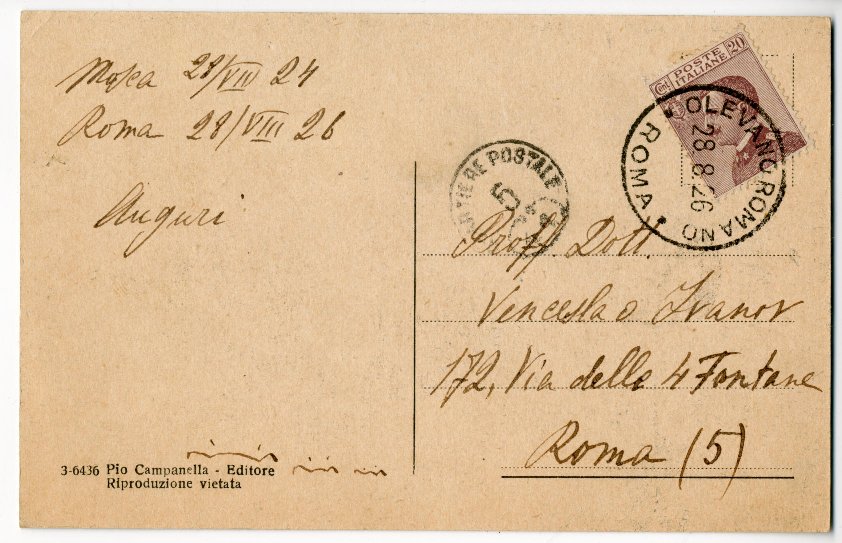 Mosca 28/VIII 24
Roma 28/VIII 26
Auguri
POSTE ITALIANE
20
OLEVANO ROMANO
28.8.26
ROMA
POSTALE
5
Proff. Dott.
Venceslao Ivanov
172, Via delle 4 Fontane
Roma (5)
3-6436 Pio Campanella - Editore
Riproduzione vietata